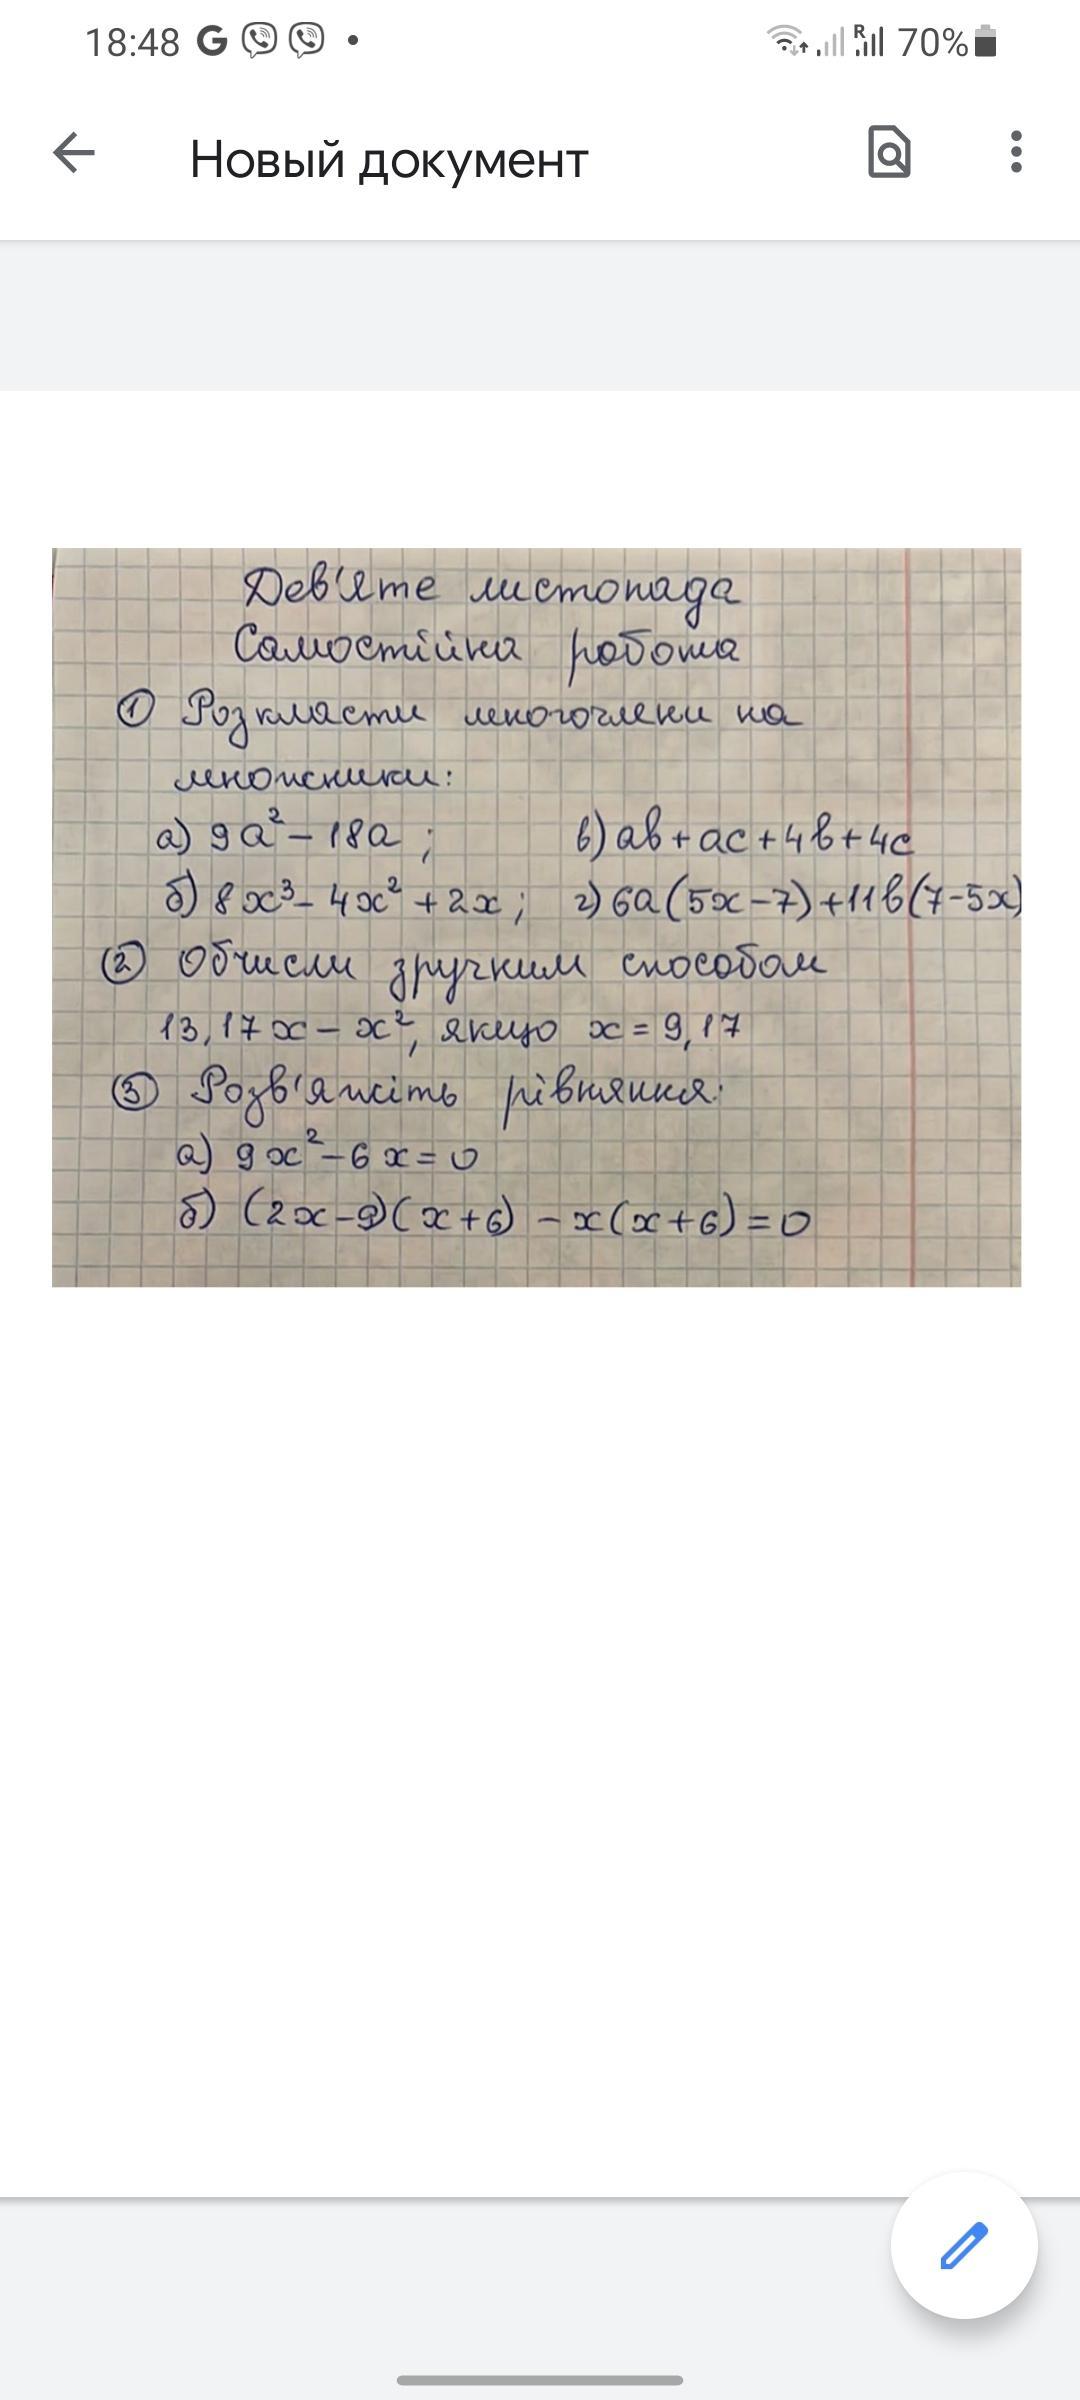 18:48 G 70%
Новый документ
Дев'яте листопада
Самостійна робота
① Розкласти многочлени на
множники:
а) 9a² – 18a ; в) ab + ac + 4b + 4c
б) 8x³ – 4x² + 2x ; г) 6a(5x – 7) + 11b(7 - 5x)
② Обчисли зручним способом
13,17x – x², якщо x = 9,17
③ Розв'яжіть рівняння:
а) 9x² – 6x = 0
б) (2x – 9)(x + 6) – x(x + 6) = 0